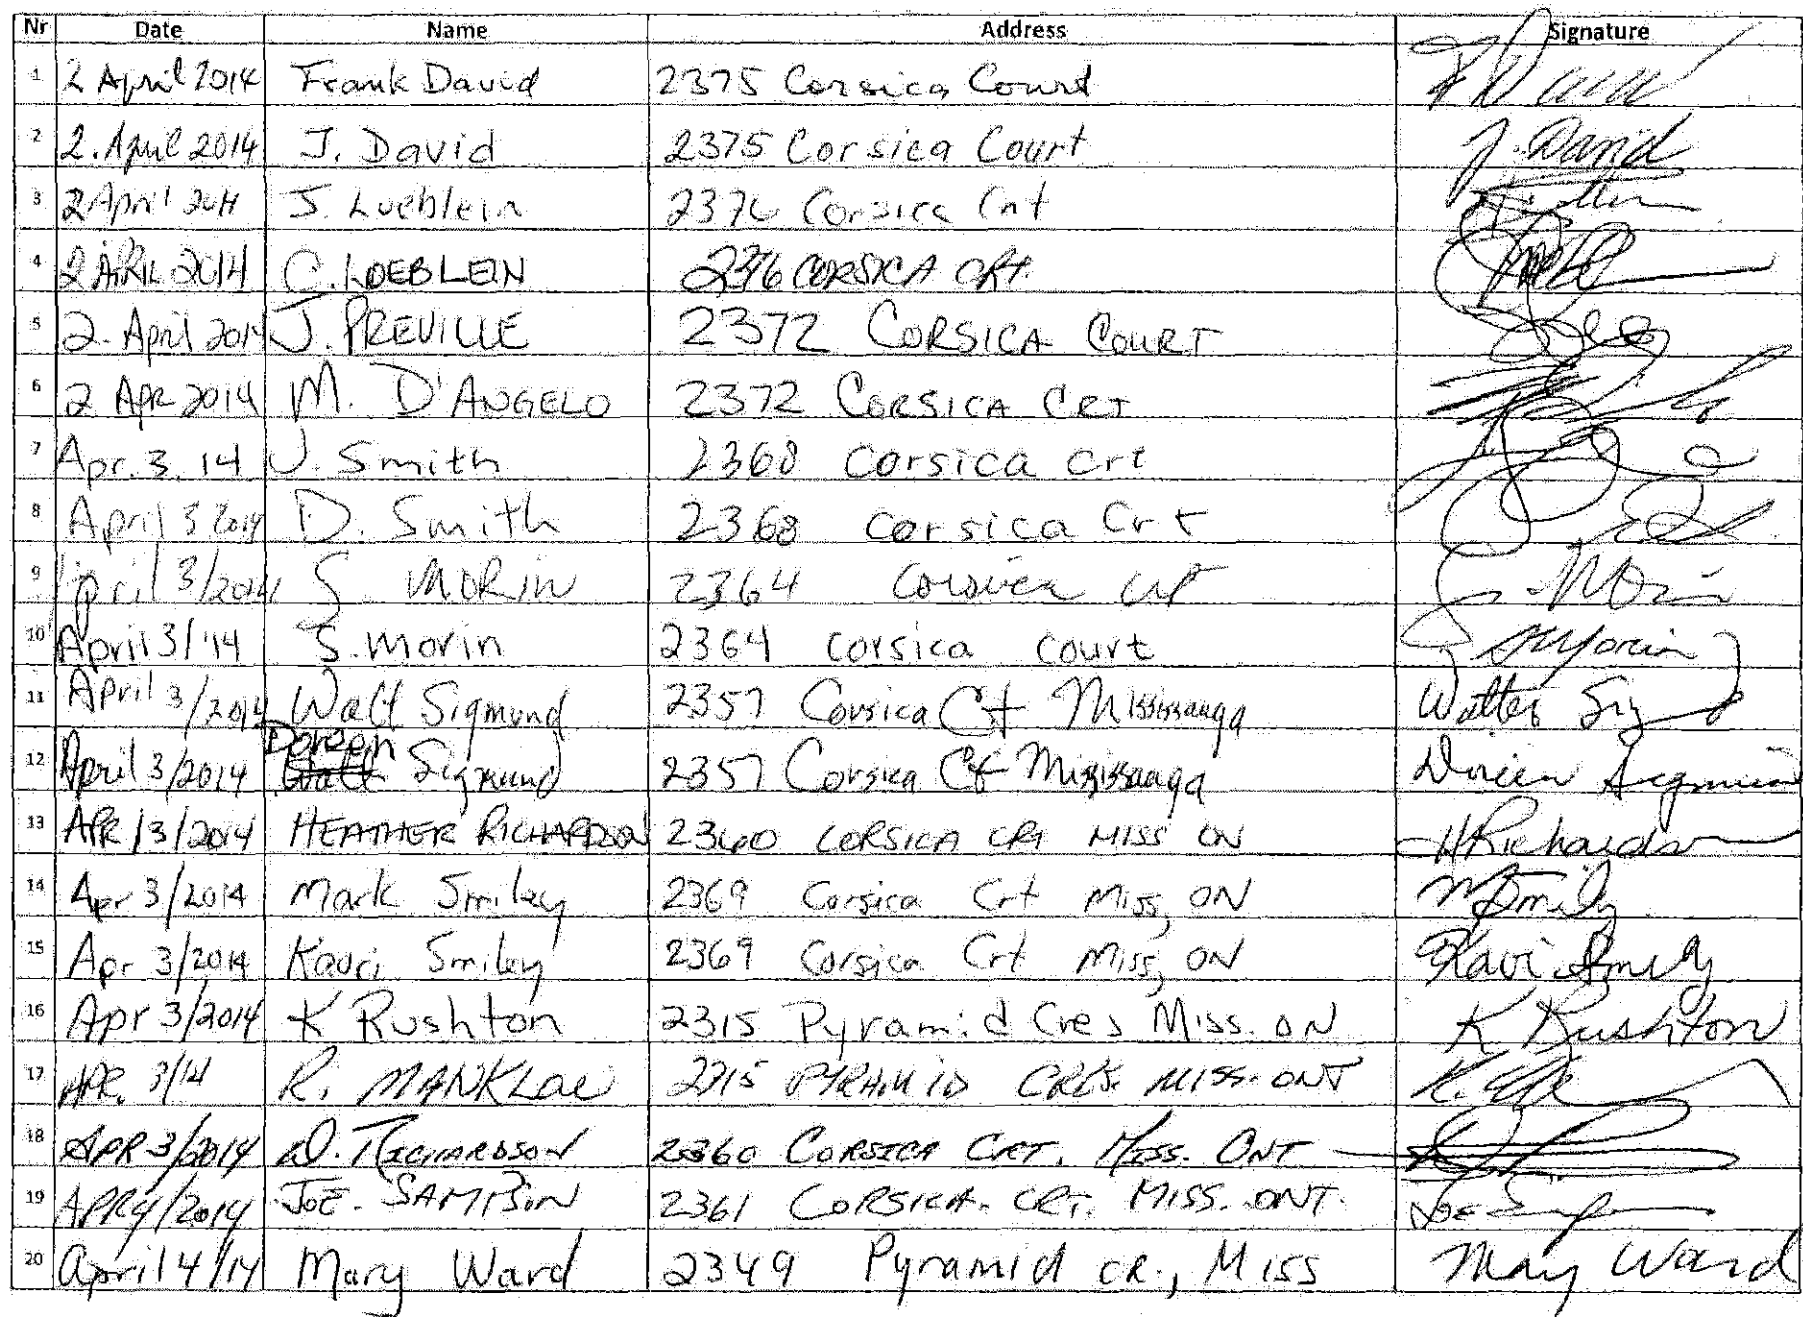 Nr Date Name Address Signature
1 2 April 2014 Frank David 2375 Corsica Court
2 2. April 2014 J. David 2375 Corsica Court J. David
3 2 April 2014 J. Loeblein 2376 Corsica Crt
4 2 APRIL 2014 C. LOEBLEIN 2376 CORSICA CRT.
5 2. April 2014 J. PREVILLE 2372 CORSICA COURT
6 2 APR 2014 M. D'ANGELO 2372 CORSICA CRT
7 Apr. 3. 14 J. Smith 2368 Corsica Crt
8 April 3 2014 D. Smith 2368 Corsica Crt
9 April 3/2014 S. MORIN 2364 Corsica Morin
10 April 3/'14 S. Morin 2364 Corsica Court
11 April 3/2014 Walt Sigmund 2357 Corsica Ct Mississauga Walter
12 April 3/2014 Doreen Sigmund 2357 Corsica Ct Mississauga Doreen Sigmund
13 APR/3/2014 HEATHER RICHARDSON 2360 CORSICA CRT MISS ON HRichardson
14 Apr 3/2014 Mark Smiley 2369 Corsica Crt Miss, ON
15 Apr 3/2014 Kaori Smiley 2369 Corsica Crt Miss, ON
16 Apr 3/2014 K Rushton 2315 Pyramid Cres Miss. ON K Rushton
17 APR. 3/14 R. 2315 PYRAMID CRES. MISS. ONT
18 APR 3/2014 D. RICHARDSON 2360 CORSICA CRT. MISS. ONT
19 APR 4/2014 JOE. SAMPSON 2361 CORSICA. CRT. MISS. ONT.
20 April 4/14 Mary Ward 2349 Pyramid CR., Miss Mary Ward